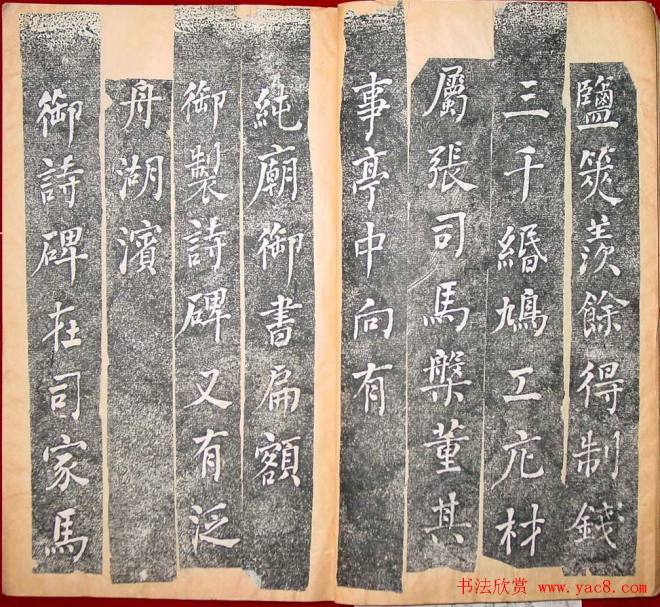 鹽筴羨餘得制錢
三千緡鳩工庀材
屬張司馬槃董其
事亭中向有
純廟御書扁額
御製詩碑又有泛
舟湖濱
御詩碑在司家馬
书法欣赏
www.yac8.com